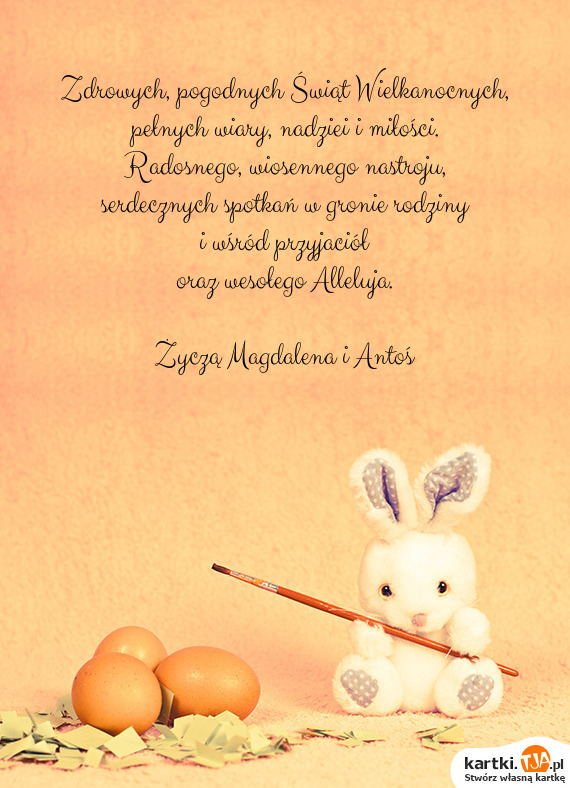 Zdrowych, pogodnych Świąt Wielkanocnych,
pełnych wiary, nadziei i miłości.
Radosnego, wiosennego nastroju,
serdecznych spotkań w gronie rodziny
i wśród przyjaciół
oraz wesołego Alleluja.
Zyczą Magdalena i Antoś
kartki.TJA.pl
Stwórz własną kartkę